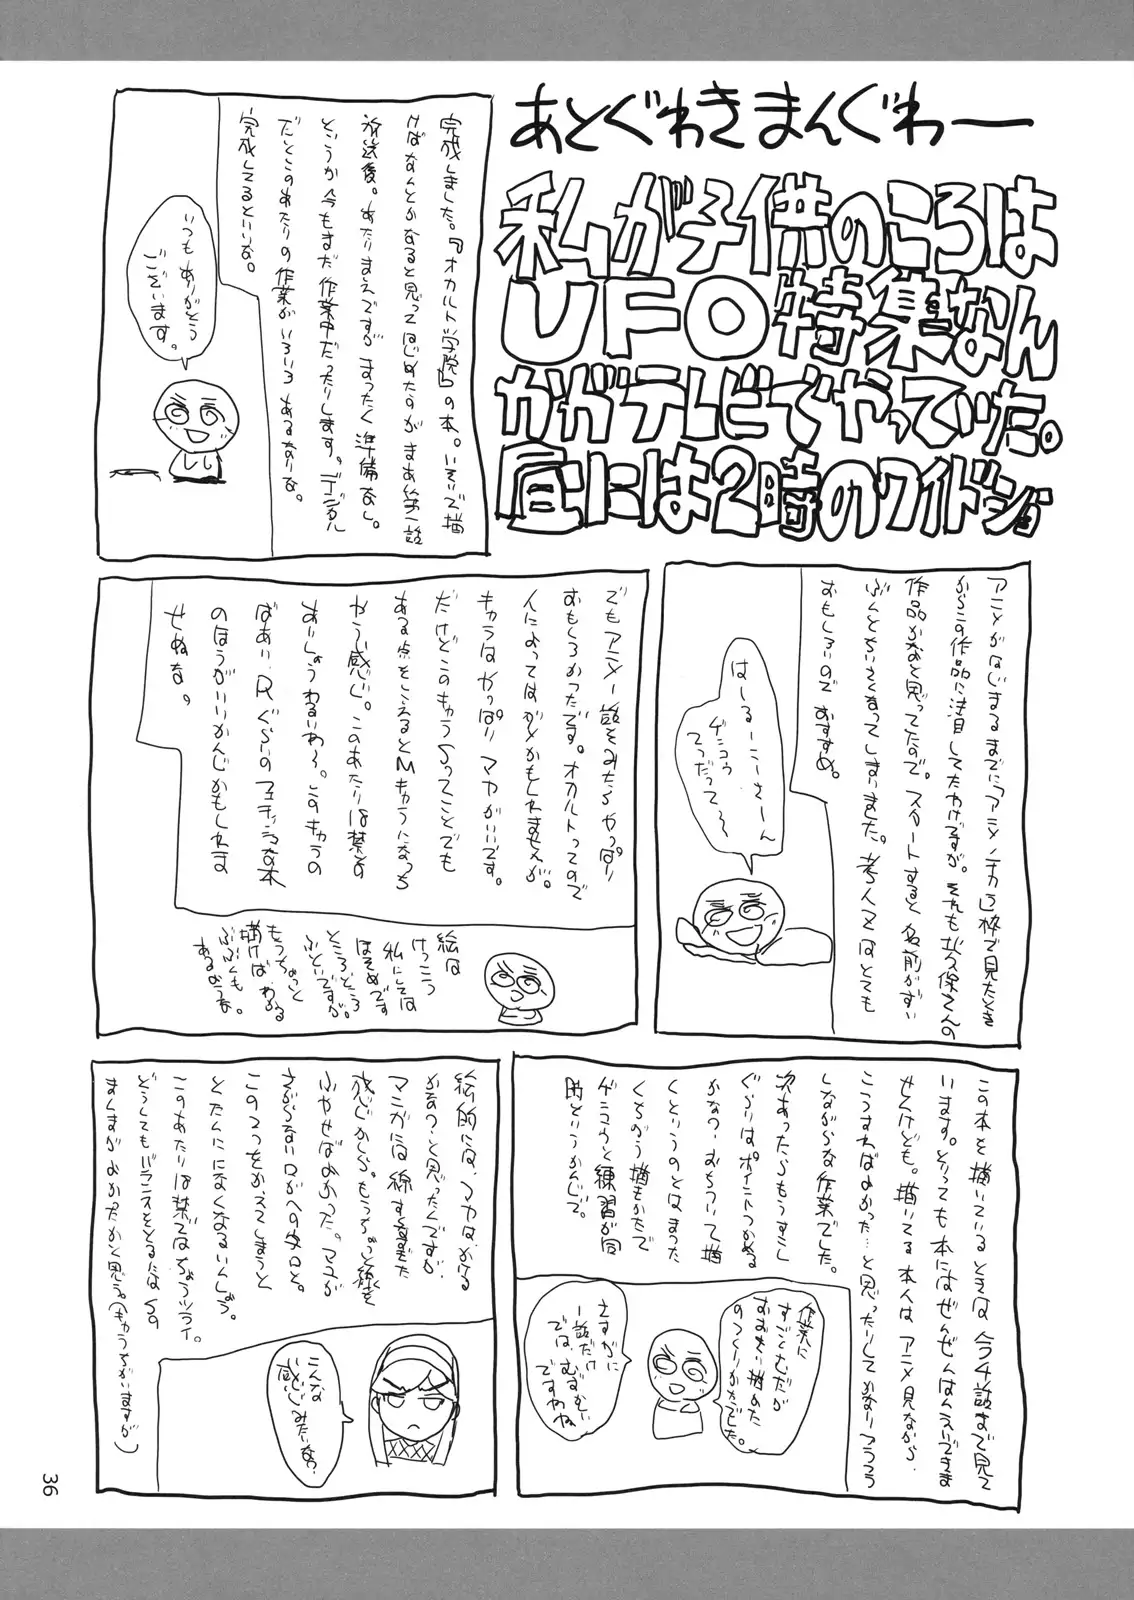 あとぐわきまんぐわー
私が子供のころは
UFO特集なん
かがテレビでやっていた。
昼には2時のワイドショ
完成しました。『オカルト学院』の本。いそいで描
けばなんとかなると思ってはじめたのがまあ第一話
放送後。あたりまえですがまったく準備なし。
というか今もまだ作業中だったりします。デジタル
だとこのあたりの作業がいろいろあるなりな。
完成してるといいな。
いつもありがとう
ございます。
アニメがはじまるまでに「アニメノチカラ」枠で見たとき
からこの作品に注目してたわけですが。それも水久保さんの
作品かなと思ってたので。スタートすると名前がずい
ぶんとちいさくなってしまいました。考人Zはとても
おもしろいのでおすすめ。
はーるーこーさーん
ゲンコウ
てつだって〜
でもアニメ一話をみたらやっぱり
おもしろかったです。オカルトってので
人によってはダメかもしれませんが。
キャラはやっぱりマヤがいいです。
だけどこのキャラSってことでも
ある点をこえるとMキャラになっち
ゃう感じ。このあたりは禁書の
あいしょうわるいわ〜。このキャラの
ばあい、Rぐらいのフェチっぽな本
のほうがいいかんじかもしれま
せぬな。
絵は
けっこう
私にしては
ほそめです
ところどころ
ふといですが。
もうちょっと
描けばわかる
ぶぶんも
あるかもな。
この本を描いているときは今4話まで見て
います。とっても本にはぜんぜんはんえいできま
せんけども。描いてる本人はアニメ見ながら、
こうすればよかった…と思ったりしてかなりフラフラ
しながらな作業でした。
次あったらもうすこし
ぐらいはポイントつかめる
かな？おちついて描
くというのとはまった
くちがう描きかたで
ゲンコウと練習が同
時というかんじで。
作業に
すごくむだが
おおきい描めた
のつくりかたでした。
さすがに
一話だけ
ではむずかしい
ですわね
絵的には、マヤはかける
かなっ、と思ったんですが
マンガには線すくなすぎた
感じかしら。もうちょっと線を
ふやせばよかった。マユが
さがらない口がへの字口と。
この2つをかえてしまうと
とたんににてなくなるいんしょう。
このあたりは禁書ではちょうツライ。
どうしてもバランスをとるにはSの
まんまがよかったかと思う。(もうちがいますが)
こんな
感じみたいな？
36